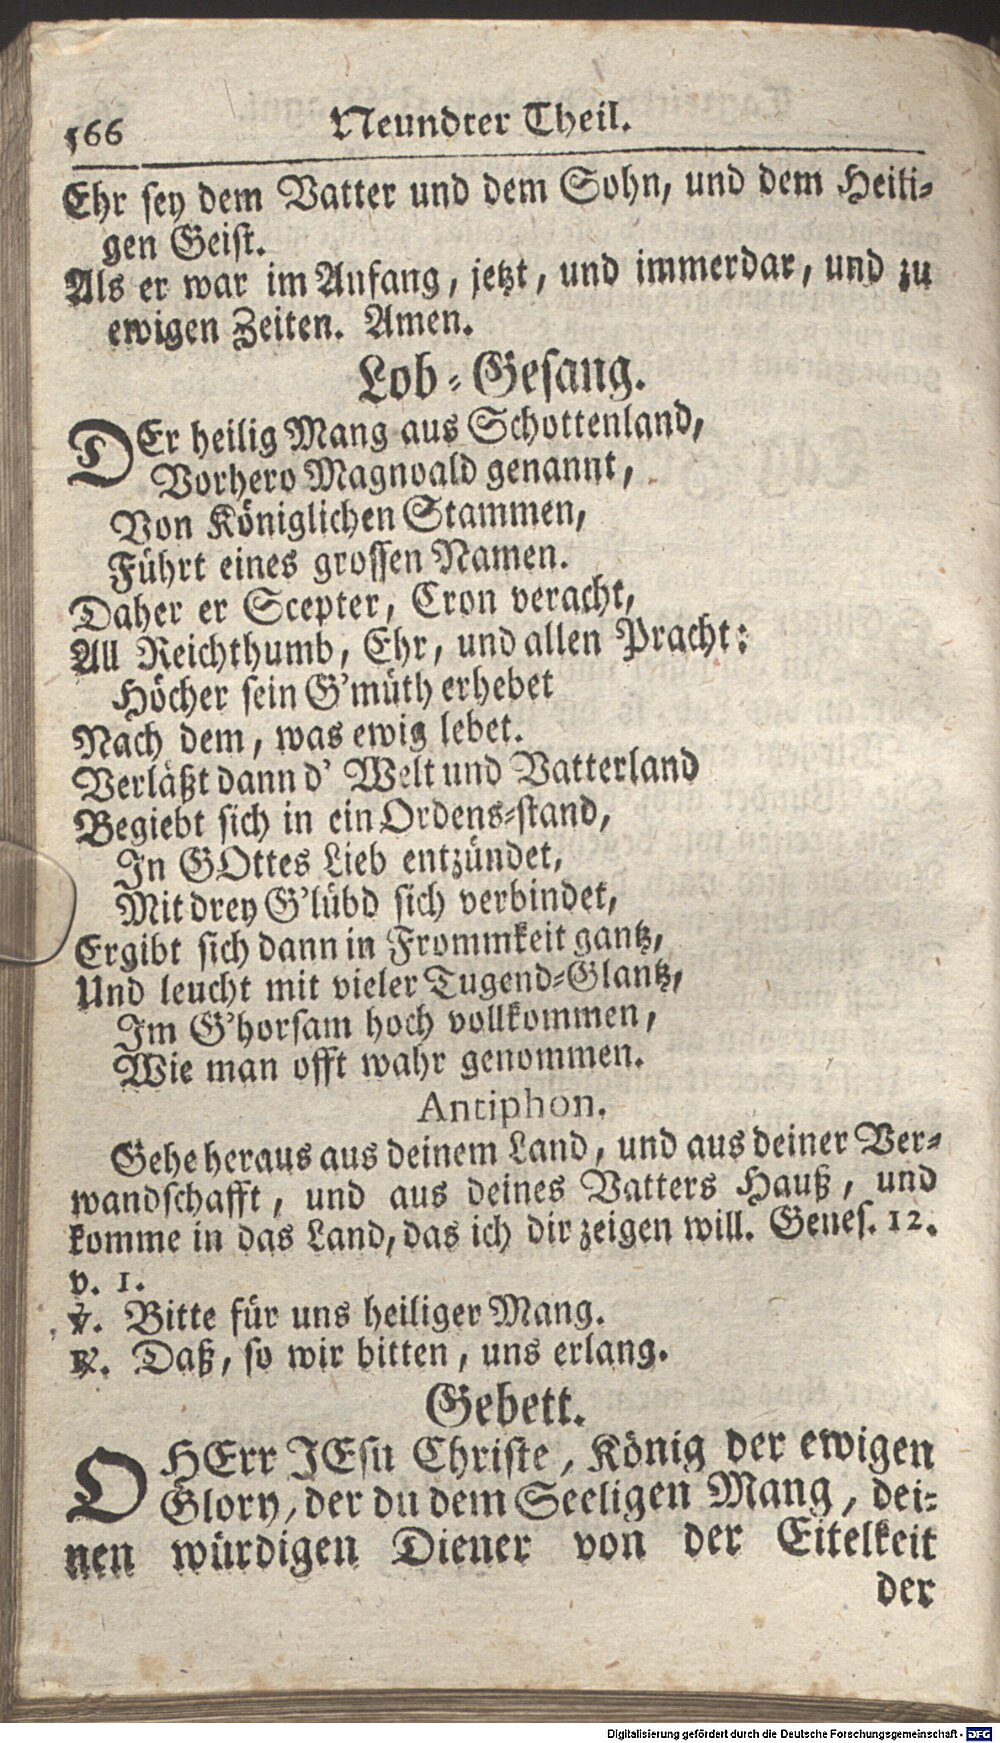 566 Neundter Theil.
Ehr sey dem Vatter und dem Sohn, und dem Heili-
gen Geist.
Als er war im Anfang, jetzt, und immerdar, und zu
ewigen Zeiten. Amen.
Lob-Gesang.
DEr heilig Mang aus Schottenland,
Vorhero Magnoald genannt,
Von Königlichen Stammen,
Führt eines grossen Namen.
Daher er Scepter, Cron veracht,
All Reichthumb, Ehr, und allen Pracht:
Höcher sein G'müth erhebet
Nach dem, was ewig lebet.
Verläßt dann d' Welt und Vatterland
Begiebt sich in ein Ordens-stand,
In GOttes Lieb entzündet,
Mit drey G'lübd sich verbindet,
Ergibt sich dann in Frommkeit gantz,
Und leucht mit vieler Tugend-Glantz,
Im G'horsam hoch vollkommen,
Wie man offt wahr genommen.
Antiphon.
Gehe heraus aus deinem Land, und aus deiner Ver-
wandschafft, und aus deines Vatters Hauß, und
komme in das Land, das ich dir zeigen will. Genes. 12.
v. 1.
℣. Bitte für uns heiliger Mang.
℟. Daß, so wir bitten, uns erlang.
Gebett.
O HErr JEsu Christe, König der ewigen
Glory, der du dem Seeligen Mang, dei-
nen würdigen Diener von der Eitelkeit
der
Digitalisierung gefördert durch die Deutsche Forschungsgemeinschaft - DFG